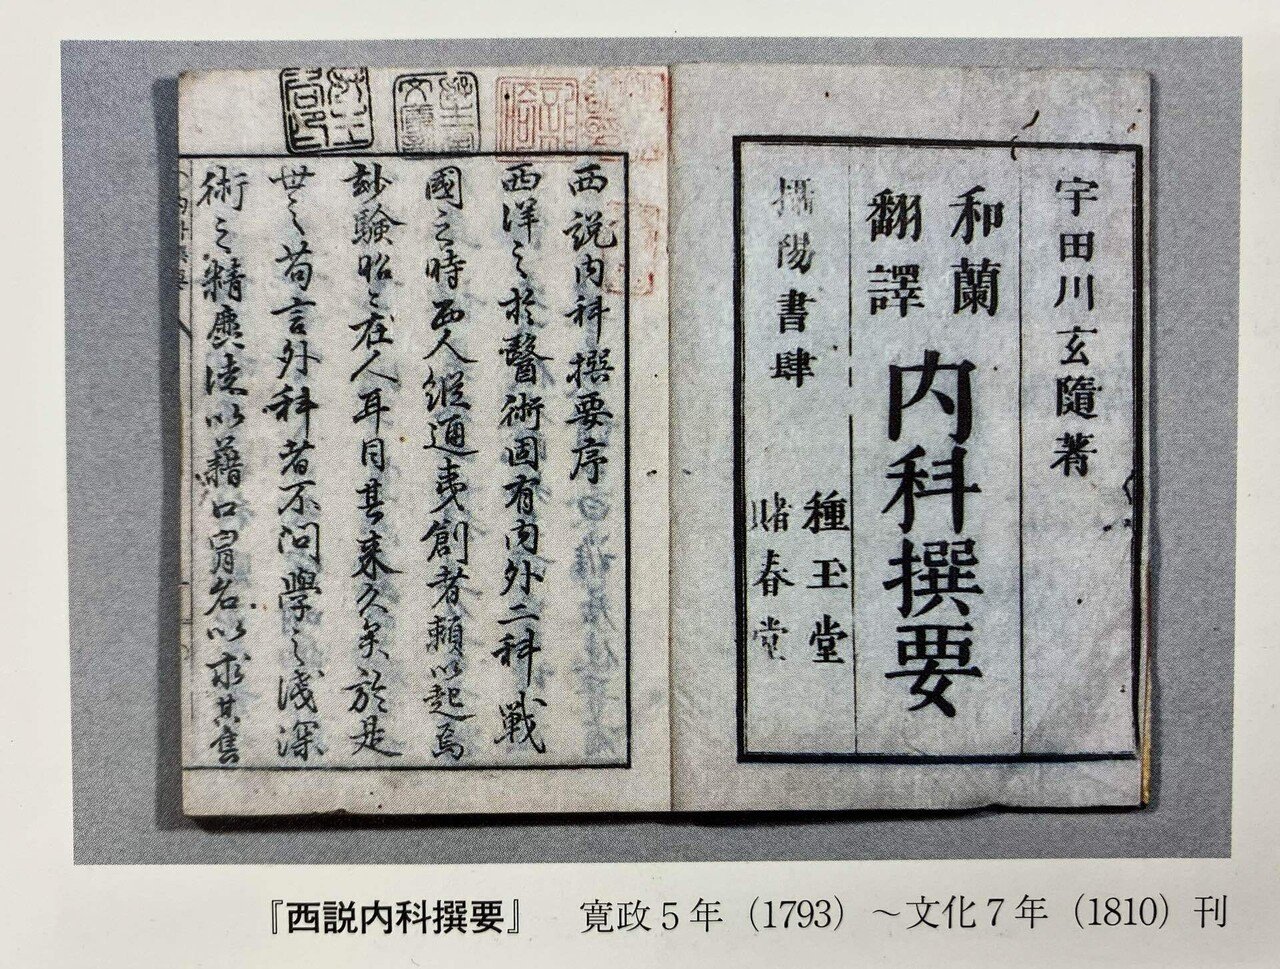 宇田川玄隨著
和蘭
翻譯
内科撰要
攝陽書肆
種玉堂
賭春堂
西説内科撰要序
西洋之於醫術固有内外二科戰
國之時西人縱通夷創者頼以起焉
玅驗昭〻在人耳目其來久矣於是
世之苟言外科者不問學之浅深
術之精麁徒以藉口冐名以求其售
『西説内科撰要』 寛政5年（1793）～文化7年（1810）刊